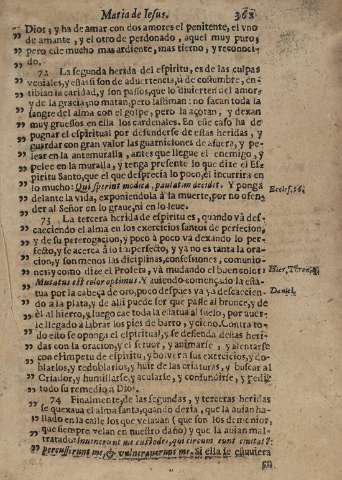 Maria de Iesus. 368
Dios; y ha de amar con dos amores el penitente, el vno
de amante, y el otro de perdonado, aquel muy puro;
pero este mucho mas ardiente, mas tierno, y reconoci-
do.
72 La segunda herida del espiritu, es de las culpas
veniales, y estas si son de aduertencia, ù de costumbre, en-
tibian la caridad, y son passos, que lo diuierten del amor
y de la gracia; no matan, pero lastiman: no sacan toda la
sangre del alma con el golpe, pero la açotan, y dexan
muy gruessos en ella los cardenales. En este caso ha de
pugnar el espiritual por defenderse de estas heridas, y
guardar con gran valor las guarniciones de afuera, y pe-
lear en la antemuralla, antes que llegue el enemigo, y
pelee en la muralla, y tenga presente lo que dize el Es-
piritu Santo, que el que desprecia lo poco, el incurrirà en
lo mucho: Qui spernit modica, paulatim decidet. Y ponga
delante la vida, exponiendola à la muerte, por no ofen-
der al Señor en lo graue, ni en lo leue.
73 La tercera herida de espiritu es, quando và des-
caeciendo el alma en los exercicios santos de perfecion,
y de su peterogacion, y poco à poco va dexando lo per-
fecto, y se acerca à lo imperfecto, y ya no es tanta la ora-
cion, y son menos las diciplinas, confessiones, comunio-
nes; y como dize el Profeta, và mudando el buen color:
Mutatus est color optimus. Y auiendo començado la esta-
tua por la cabeça de oro, poco despues va ya descaecien-
do a la plata, y de alli puede ser que passe al bronce, y de
èl al hierro, y luego cae toda la estatua al suelo, por auer-
se llegado à labrar los pies de barro, y cieno. Contra to-
do esto se oponga el espiritual, y se defienda destas heri-
das con la oracion, y el feruor, y animarse, y alentarse
con el impetu de espiritu, y boluer a sus exercicios, y do-
blarlos, y redoblarlos, y huir de las criaturas, y buscar al
Criador, y humillarse, y acusarse, y confundirse, y pedir
todo su remedio à Dios.
74 Finalmente, de las segundas, y terceras heridas
se quexaua el alma santa, quando dezia, que la auian ha-
llado en la calle los que velauan (que son los demonios,
que siempre velan en nuestro daño) y que la auian mal-
tratado: Inuenerunt me custodes, qui circunt eunt ciuitatē:
percusserunt me, & vulnerauerunt me. Si ella se estuuiera
Eccles. 14.
Hier. Thren. 4.
Daniel.